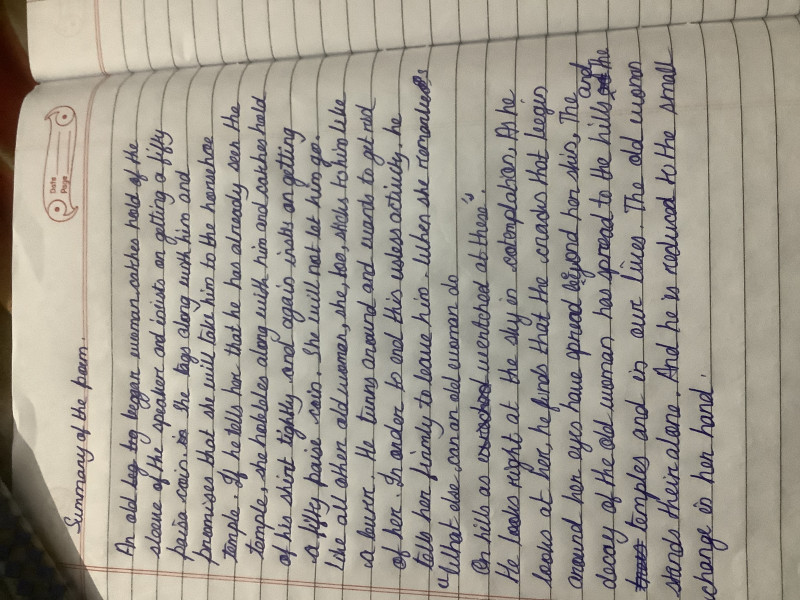 Date
Page
Summary of the poem.
An old beggar woman catches hold of the
sleeve of the speaker and insists on getting a fifty
paise coin. She tags along with him and
promises that she will take him to the horseshoe
temple. If he tells her that he has already seen the
temple, she hobbles along with him and catches hold
of his shirt tightly and again insts on getting
a fifty paise coin. She will not let him go.
like all other old woman, she, too, sticks to him like
a burr. He turns around and wants to get rid
of her. In order to end this useless activity, he
tells her firmly to leave him. When she remarks
"What else can an old woman do
On hills as wretched at these".
He looks right at the sky in contemplation. As he
looks at her, he finds that the cracks that begin
around her eyes have spread beyond her skin. The and
decay of the old woman has spread to the hills the
temples and in our lives. The old woman
stands their alone. And he is reduced to the small
change in her hand.